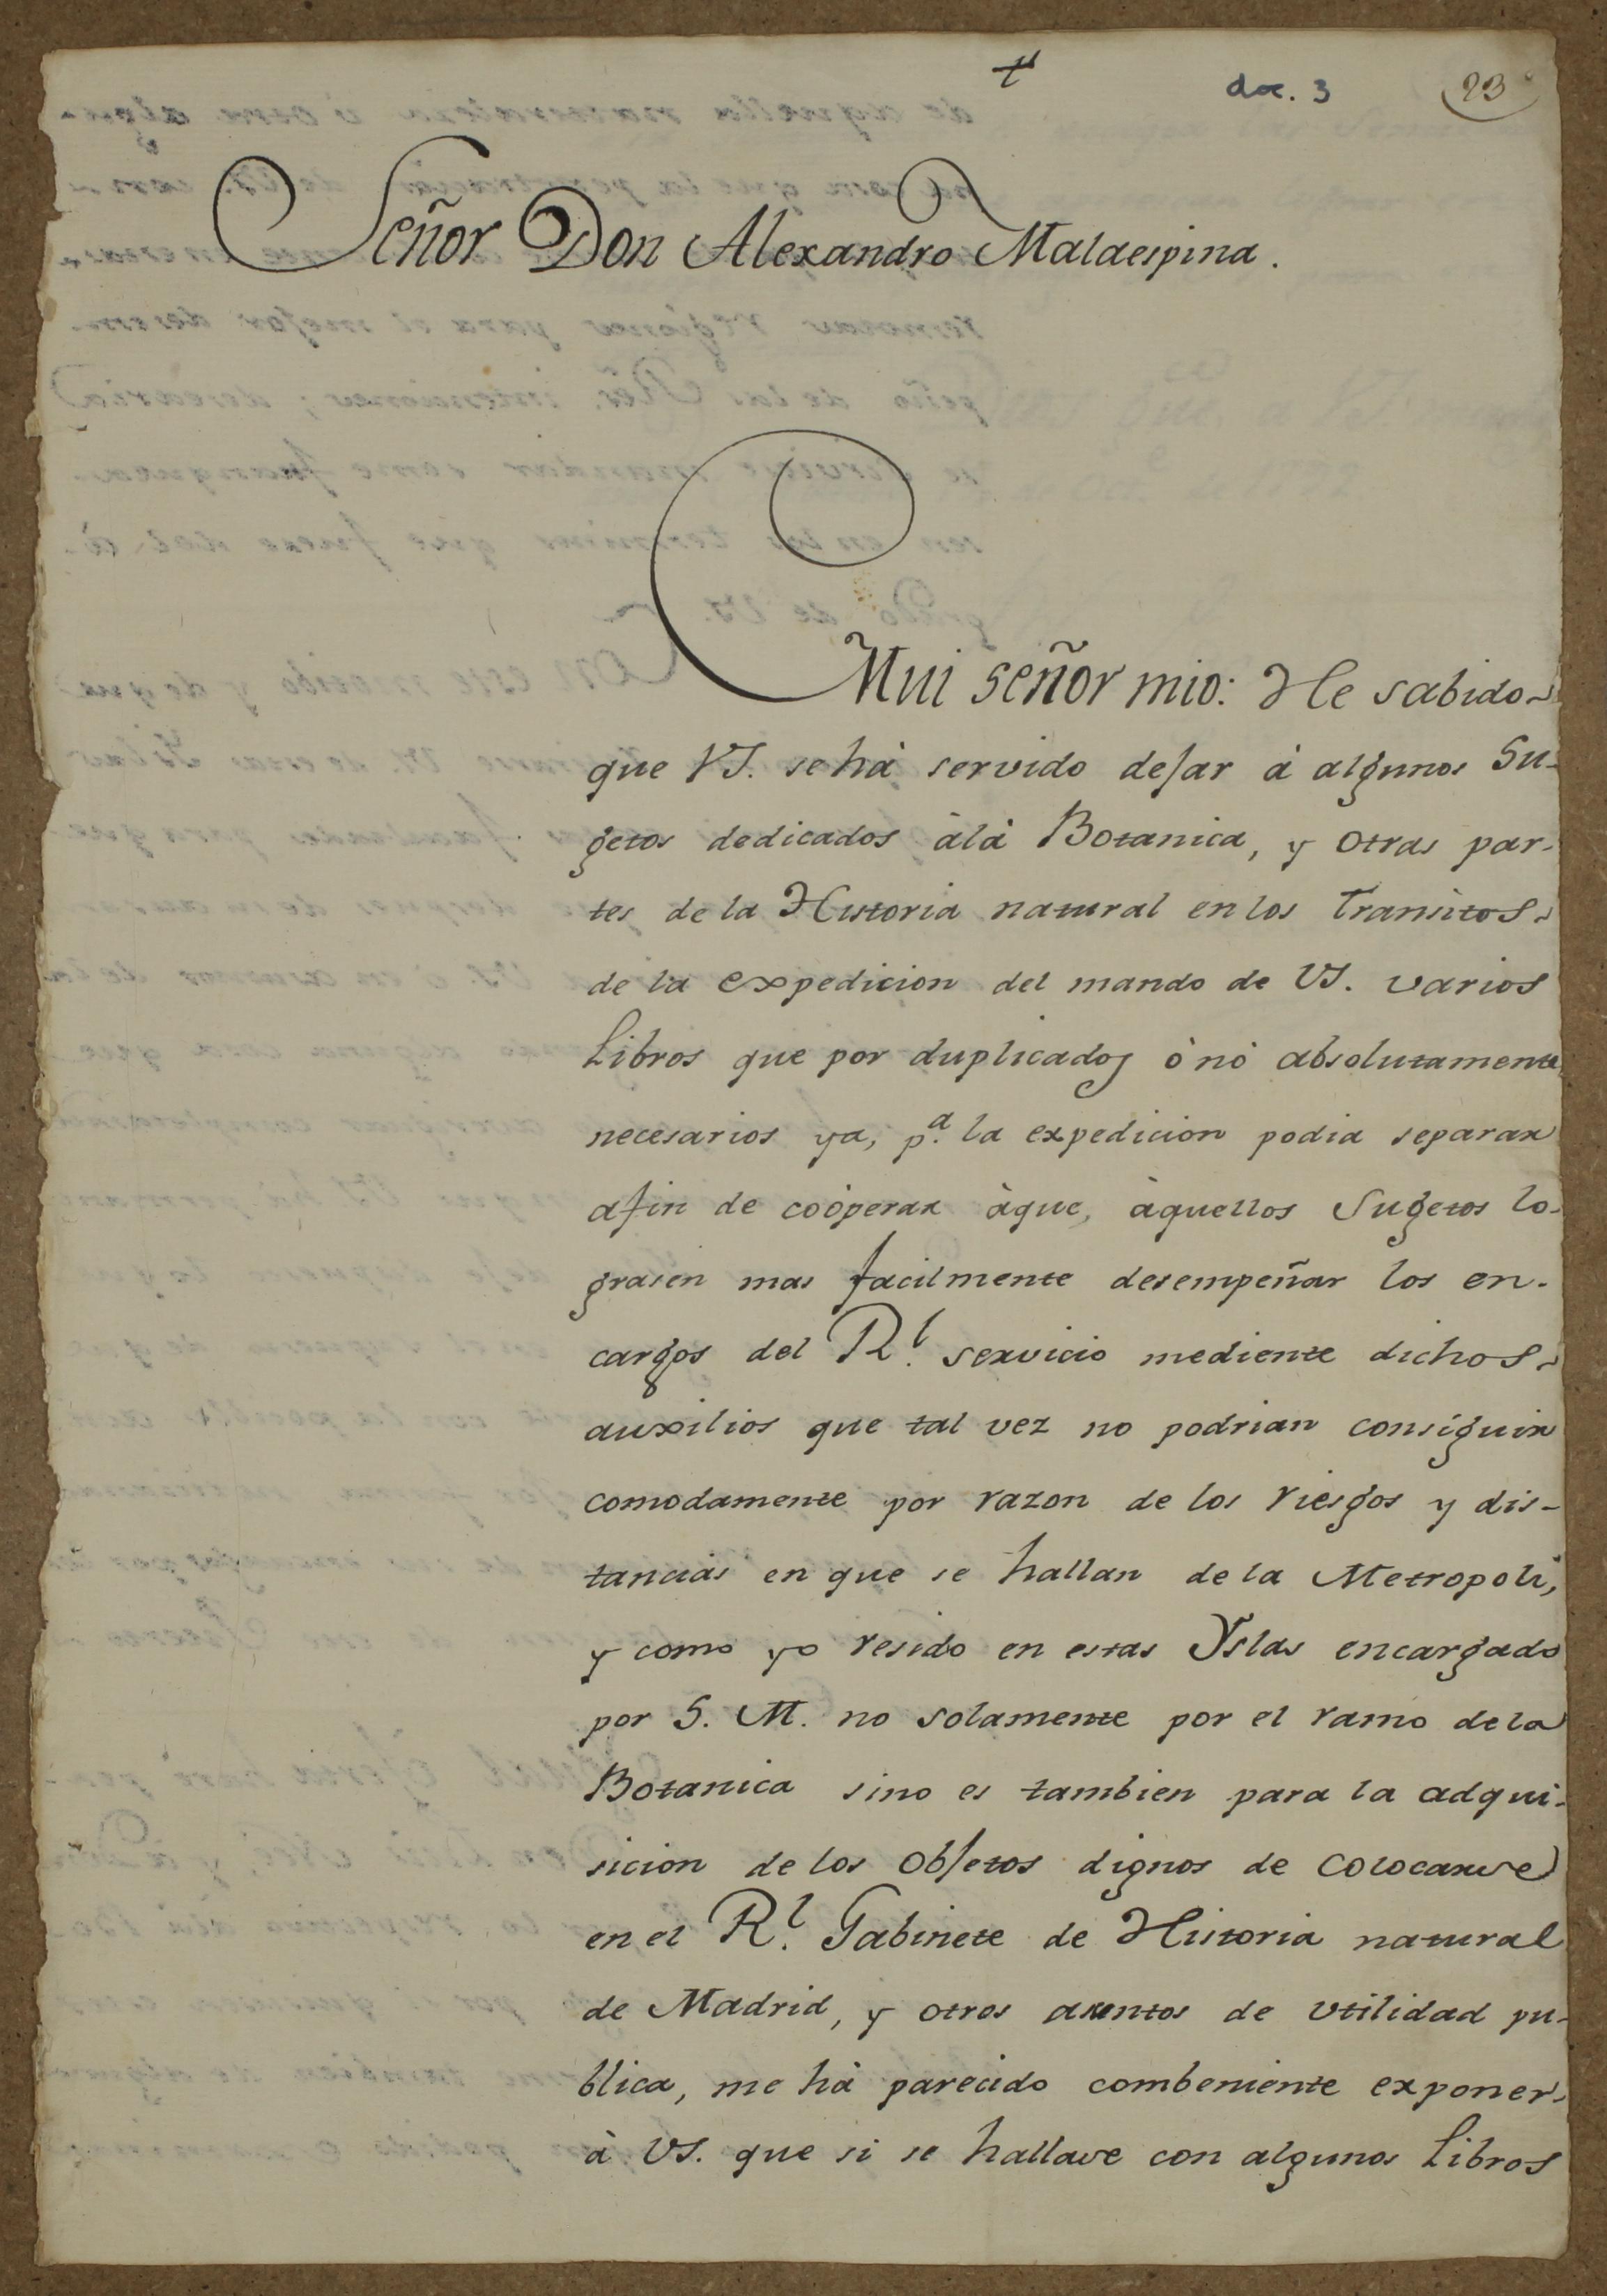 doc. 3
23
Señor Don Alexandro Malaespina.
Mui señor mio: He sabido
que VS. se hà servido dejar à algunos Su-
getos dedicados àlà Botanica, y otras par-
tes de la Historia natural en los Transitos
de la expedicion del mando de VS. varios
Libros que por duplicados ò nò absolutamente
necesarios ya, pª. la expedicion podia separar
afin de coòperar àque, àquellos Sugetos lo-
grasen mas facilmente desempeñar los en-
cargos del Rl. servicio mediente dichos
auxilios que tal vez no podrian conseguir
comodamente por razon de los riesgos y dis-
tancias en que se hallan de la Metropoli,
y como yo resido en estas Yslas encargado
por S. M. no solamente por el ramo de la
Botanica sino es tambien para la adqui-
sicion de los objetos dignos de colocarse
en el Rl. Gabinete de Historia natural
de Madrid, y otros asuntos de utilidad pu-
blica, me hà parecido combeniente exponer
à VS. que si se hallase con algunos Libros